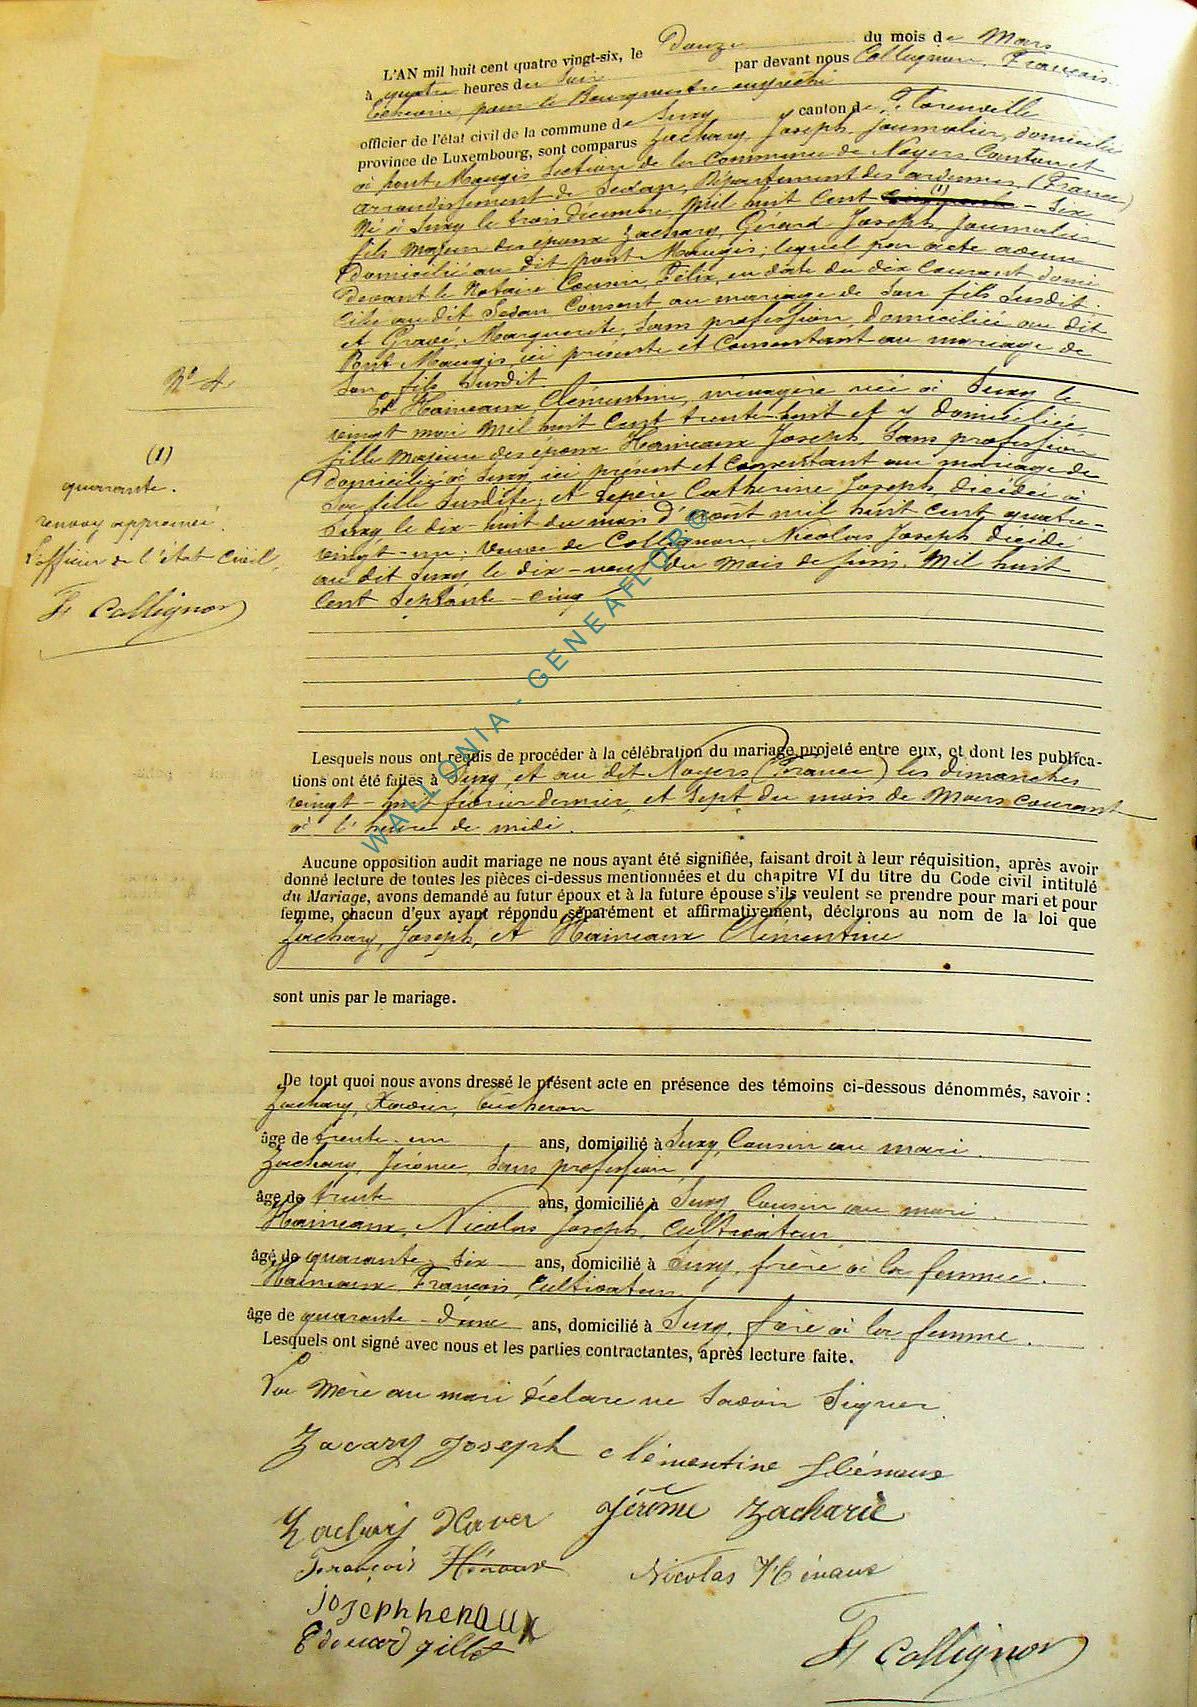 L'AN mil huit cent quatre vingt-six, le Douze du mois de Mars
à quatre heures du soir par devant nous Collignon, François
Echevin, pour le Bourgmestre empêché
officier de l'état civil de la commune de Suxy canton de Florenville
province de Luxembourg, sont comparus Zachary, Joseph, Journalier, domicilié
à pont Maugis Section de la Commune de Noyers Canton et
arrondissement de Sedan, Département des ardennes, (France)
Né à Suxy le trois décembre, Mil huit Cent (1) - Six
fils Majeur des époux Zachary, Gérard Joseph Journalier
domicilié au dit pont Maugis, lequel par acte advenu
devant le Notaire Cousin, Félix, en date du dix Courant domi
cilié au dit Sedan Consent au mariage de Son fils Susdit;
et Gravé, Marguerite, Sans profession, domiciliée au dit
Pont Maugis ici présente et Consentant au mariage de
Son fils Susdit
Et Haineaux Clémentine, ménagère née à Suxy le
vingt mai Mil huit Cent trente-huit et y domiciliée
fille majeure des époux Haineaux Joseph Sans profession
domicilié à Suxy ici présent et Consentant au mariage de
Sa fille Susdite; et Lepère Catherine Joseph, décédée à
Suxy le dix-huit du mois d'août mil huit cent quatre-
vingt-un. Veuve de Collignon, Nicolas Joseph décédé
au dit Suxy, le dix-neuf du mois de juin Mil huit
Cent Septante-Cinq
N° 4
(1)
quarante.
renvoy approuvé.
L'officier de l'état Civil,
F. Collignon
Lesquels nous ont requis de procéder à la célébration du mariage projeté entre eux, et dont les publica-
tions ont été faites à Suxy et au dit Noyers (France) les dimanches
vingt-huit février dernier et Sept du mois de Mars Courant
à l'heure de midi.
Aucune opposition audit mariage ne nous ayant été signifiée, faisant droit à leur réquisition, après avoir
donné lecture de toutes les pièces ci-dessus mentionnées et du chapitre VI du titre du Code civil intitulé
du Mariage, avons demandé au futur époux et à la future épouse s'ils veulent se prendre pour mari et pour
femme, chacun d'eux ayant répondu séparément et affirmativement, déclarons au nom de la loi que
Zachary, Joseph, et Haineaux Clémentine
sont unis par le mariage.
De tout quoi nous avons dressé le présent acte en présence des témoins ci-dessous dénommés, savoir :
Zachary, Xavier, bucheron
âgé de trente-un ans, domicilié à Suxy, Cousin au mari.
Zachary, Jérôme, Sans profession
âgé de trente ans, domicilié à Suxy Cousin au mari
Haineaux, Nicolas Joseph, Cultivateur
âgé de quarante-six ans, domicilié à Suxy, frère à la femme.
Haineaux François, Cultivateur
âgé de quarante-deux ans, domicilié à Suxy, frère à la femme.
Lesquels ont signé avec nous et les parties contractantes, après lecture faite.
La Mère au mari déclare ne Savoir Signer
Zacary Joseph Clémentine Hénaux
Zachary Xaver Jérôme Zacharie
François Hénaux Nicolas Hénaux
joseph henaux
Edouard gillet
F. Collignon
WALLONIA - GENEAFLOR©